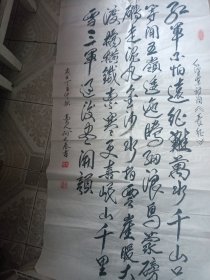 紅軍不怕遠征難萬水千山
只等闲五嶺逶迤腾細浪烏蒙磅
礴走泥丸金沙水拍雲崖暖大
渡橋橫鐵索寒更喜岷山千里
雪三軍過後盡開顏